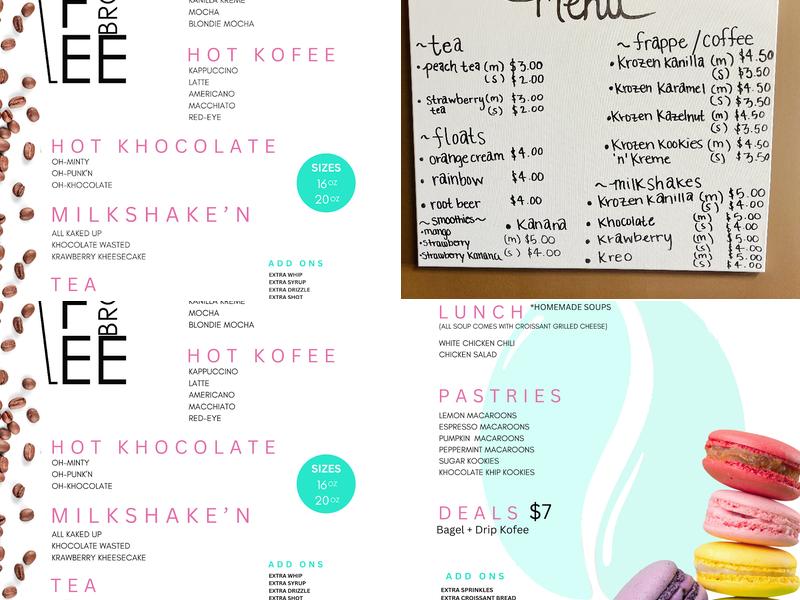 F
EE
BRO
KANILLA KREME
MOCHA
BLONDIE MOCHA
HOT KOFEE
KAPPUCCINO
LATTE
AMERICANO
MACCHIATO
RED-EYE
HOT KHOCOLATE
OH-MINTY
OH-PUNK'N
OH-KHOCOLATE
SIZES
16 OZ
20 OZ
MILKSHAKE'N
ALL KAKED UP
KHOCOLATE WASTED
KRAWBERRY KHEESECAKE
TEA
ADD ONS
EXTRA WHIP
EXTRA SYRUP
EXTRA DRIZZLE
EXTRA SHOT
Menu
~tea
•peach tea (m) $3.00
(s) $2.00
•strawberry (m) $3.00
tea (s) $2.00
~floats
•orange cream $4.00
•rainbow $4.00
•root beer $4.00
~smoothies~
•mango
•strawberry
•strawberry Kanana
•Kanana
(m) $5.00
(s) $4.00
~frappe/coffee
•Krozen Kanilla (m) $4.50
(s) $3.50
•Krozen Karamel (m) $4.50
(s) $3.50
•Krozen Kazelnut (m) $4.50
(s) $3.50
•Krozen Kookies (m) $4.50
'n' Kreme (s) $3.50
~milkshakes
•Krozen Kanilla (m) $5.00
(s) $4.00
•Khocolate (m) $5.00
(s) $4.00
•Krawberry (m) $5.00
(s) $4.00
•Kreo (m) $5.00
(s) $4.00
F
EE
BRO
KANILLA KREME
MOCHA
BLONDIE MOCHA
HOT KOFEE
KAPPUCCINO
LATTE
AMERICANO
MACCHIATO
RED-EYE
HOT KHOCOLATE
OH-MINTY
OH-PUNK'N
OH-KHOCOLATE
SIZES
16 OZ
20 OZ
MILKSHAKE'N
ALL KAKED UP
KHOCOLATE WASTED
KRAWBERRY KHEESECAKE
TEA
ADD ONS
EXTRA WHIP
EXTRA SYRUP
EXTRA DRIZZLE
EXTRA SHOT
LUNCH *HOMEMADE SOUPS
(ALL SOUP COMES WITH CROISSANT GRILLED CHEESE)
WHITE CHICKEN CHILI
CHICKEN SALAD
PASTRIES
LEMON MACAROONS
ESPRESSO MACAROONS
PUMPKIN MACAROONS
PEPPERMINT MACAROONS
SUGAR KOOKIES
KHOCOLATE KHIP KOOKIES
DEALS $7
Bagel + Drip Kofee
ADD ONS
EXTRA SPRINKLES
EXTRA CROISSANT BREAD